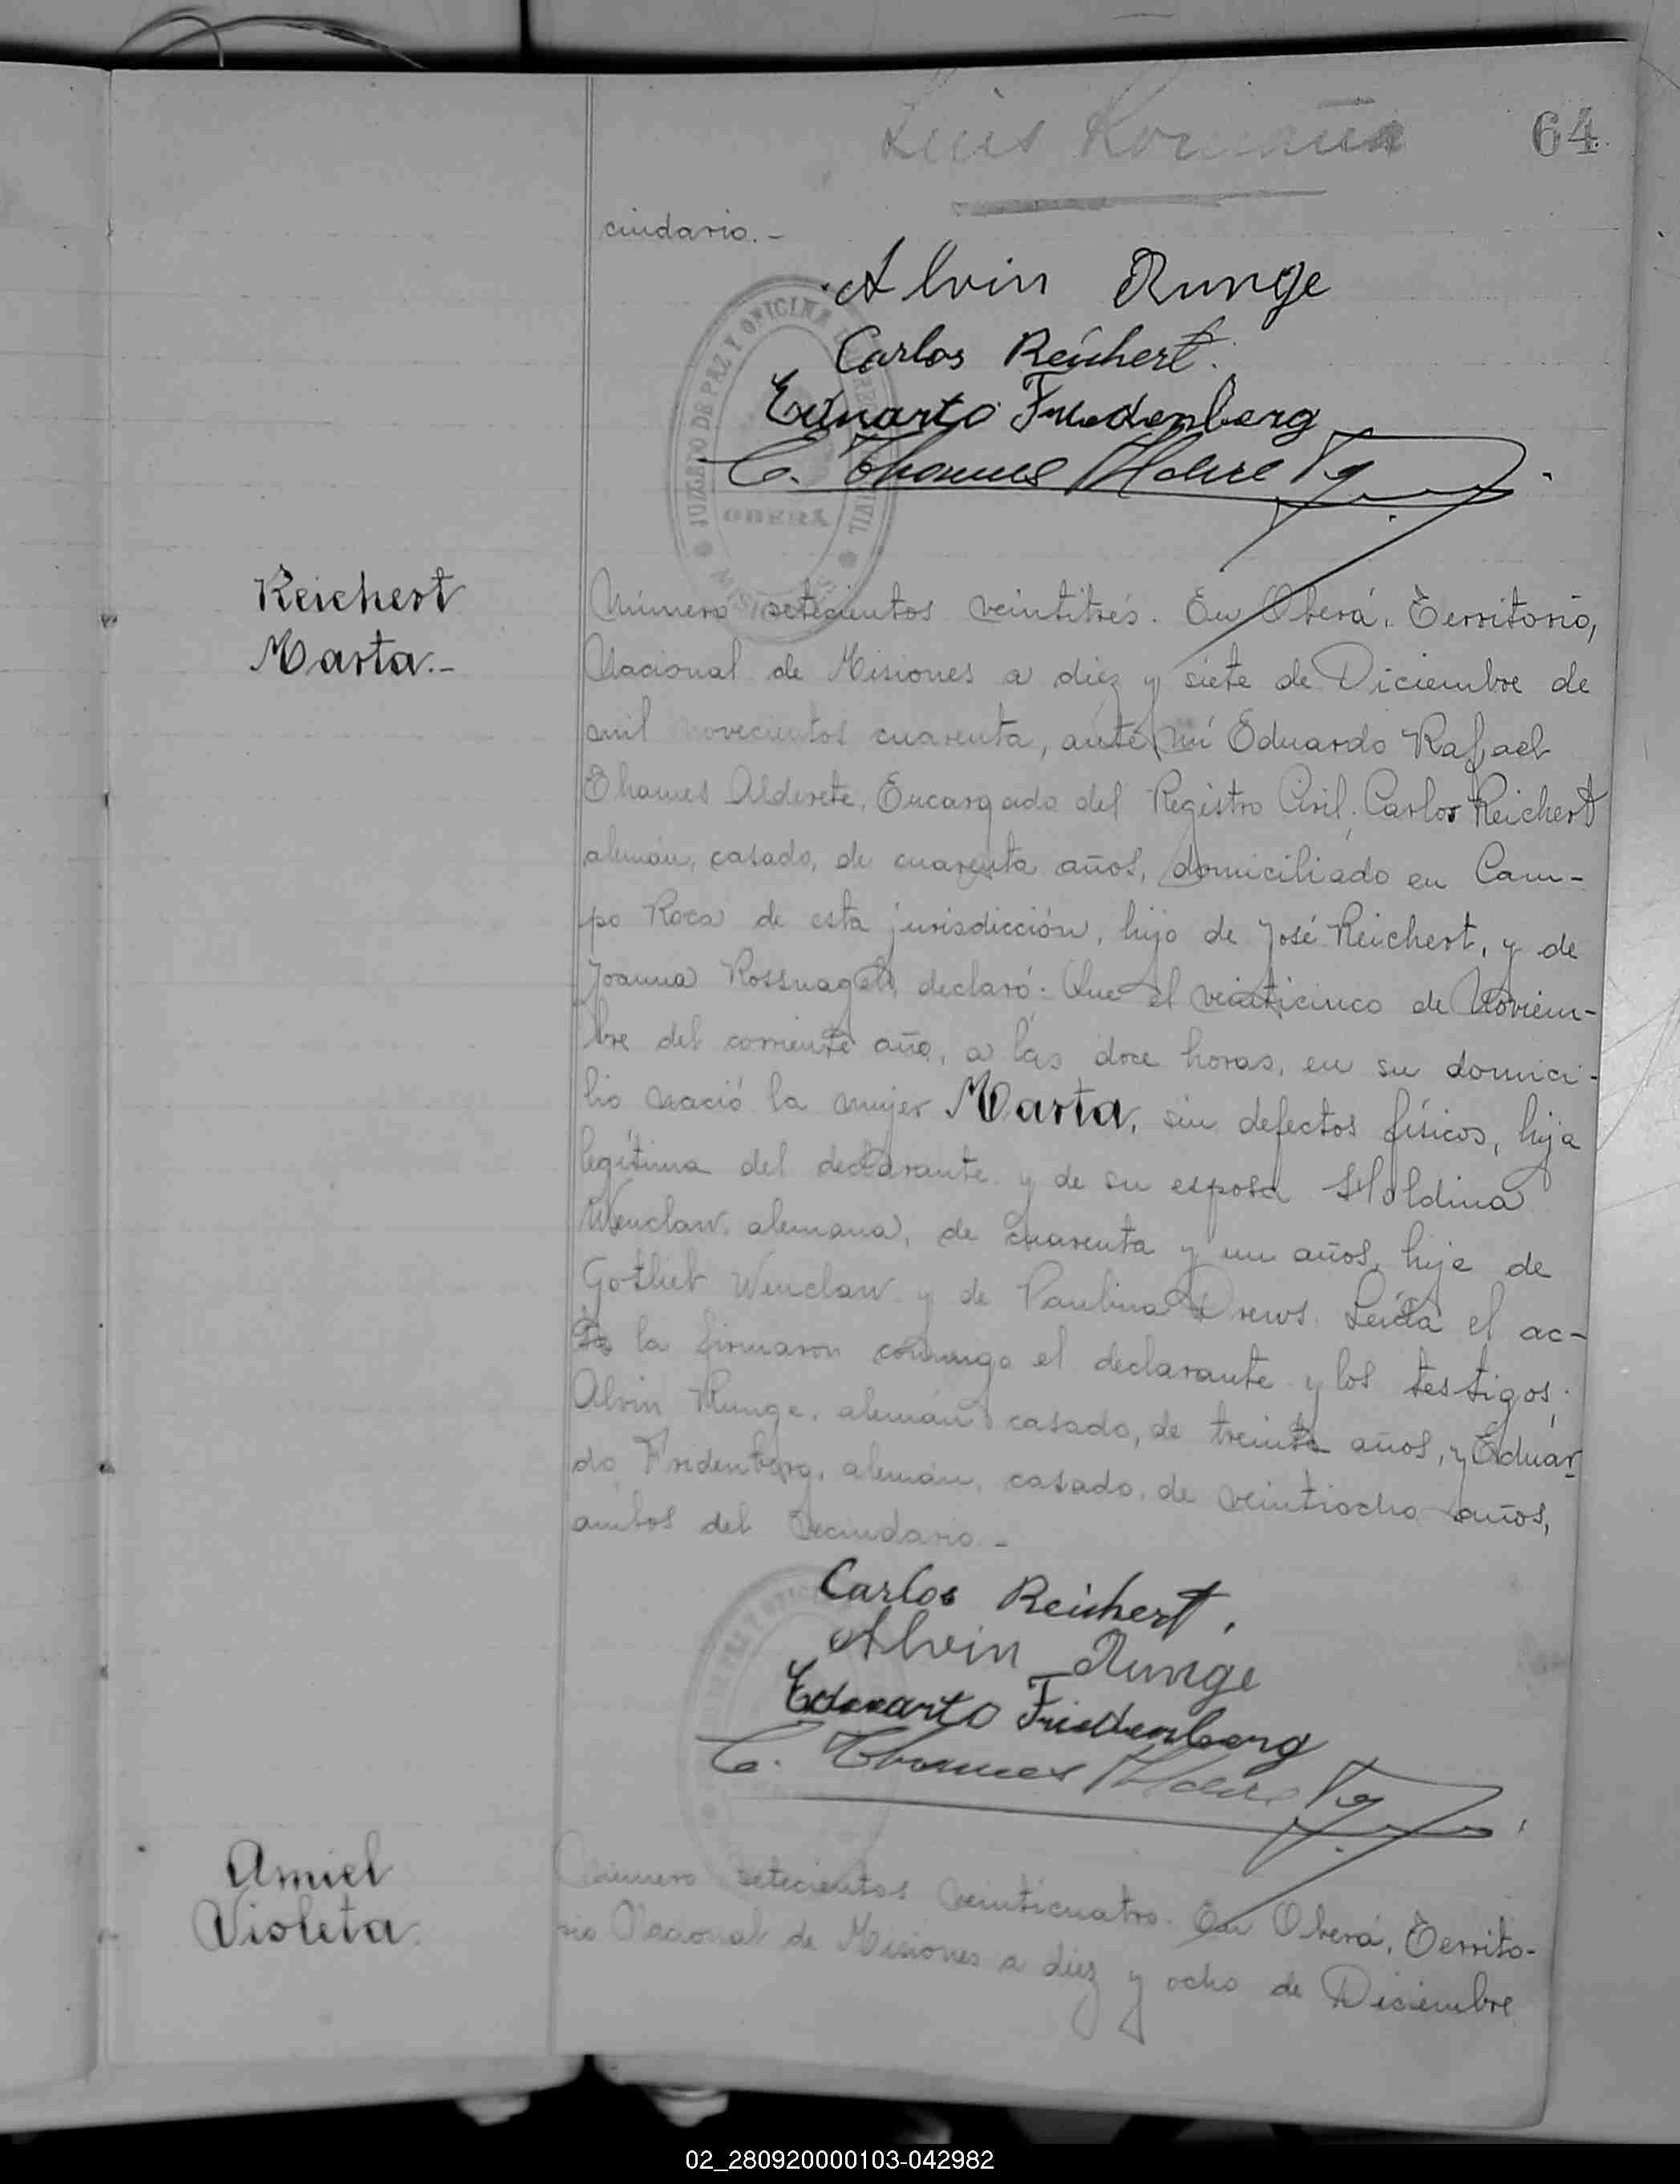 Luis
64
cindario.-
Alvin Runge
Carlos Reichert.
Eduarto Friedenberg
JUZGADO DE PAZ Y OFICINA DEL REGISTRO CIVIL
OBERÁ
MISIONES
Reichert
Marta.-
Número setecientos veintitrés. En Oberá, Territorio,
Nacional de Misiones a diez y siete de Diciembre de
mil novecientos cuarenta, ante mí Eduardo Rafael
Thames Alderete, Encargado del Registro Civil, Carlos Reichert
alemán, casado, de cuarenta años, domiciliado en Cam-
po Roca de esta jurisdicción, hijo de José Reichert, y de
Joanna declaró: Que el veinticinco de Noviem-
bre del corriente año, a las doce horas, en su domici-
lio nació la mujer Marta, sin defectos físicos, hija
legítima del declarante y de su esposa Holdina
Wenclaw, alemana, de cuarenta y un años, hija de
Gotlieb Wenclaw y de Paulina Drews. Leída el ac-
ta la firmaron conmigo el declarante y los testigos:
Alvin Runge, alemán casado, de treinta años, y Eduar-
do Fridenberg, alemán, casado, de veintiocho años,
ambos del vecindario.-
Carlos Reichert,
Alvin Runge
Eduarto Friedenberg
Amiel
Violeta.
Número setecientos veinticuatro. En Oberá, Territo-
rio Nacional de Misiones a diez y ocho de Diciembre
02_280920000103-042982